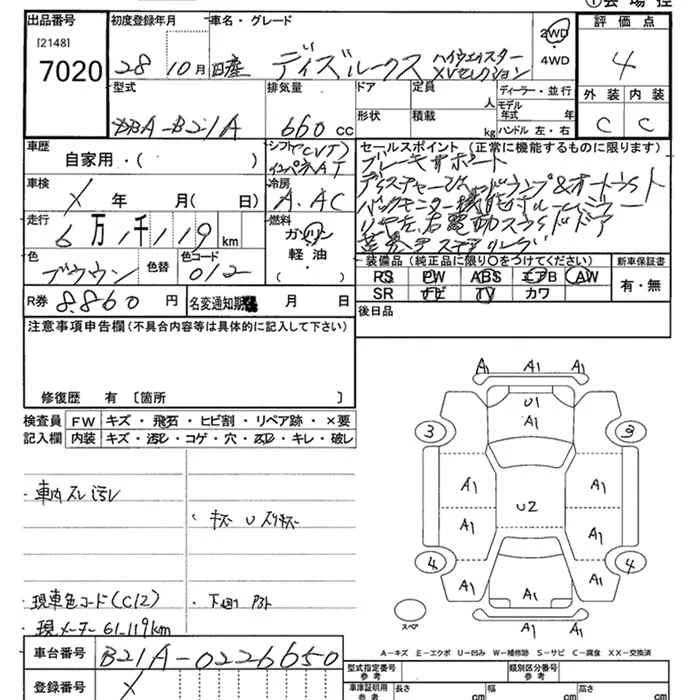 ①会場控
出品番号
初度登録年月
車名・グレード
2WD
評価点
[2148]
7020
28 10月
日産 デイズルークス ハイウェイスター
XVセレクション
・4WD
4
型式
排気量
ドア
定員
人
ディーラー・並行
外装
内装
DBA-B21A
660 cc
形状
積載
kg
モデル年式
年
ハンドル 左・右
C
C
車歴
自家用・(　　)
シフト (CVT)
インパネAT
セールスポイント (正常に機能するものに限ります)
ブレーキサポート
車検
X 年 月( 日)
冷房
A.AC
ディスチャージヘッドランプ&オートライト
バックモニター機能付ルームミラー
走行
6万1千119 km
燃料
ガソリン
軽油
・( )
リヤ左右電動スライドドア
革巻きステアリング
色
ブラウン
色替
色コード
012
装備品 (純正品に限り○をつけてください)
新車保証書
RS PW ABS エアB AW
SR ナビ TV カワ
有・無
R券
8.860 円
名変通知期限
月 日
後日品
注意事項申告欄(不具合内容等は具体的に記入して下さい)
修復歴 有 〔箇所 〕
検査員
記入欄
FW
キズ・飛石・ヒビ割・リペア跡・×要
内装
キズ・汚レ・コゲ・穴・スレ・キレ・破レ
A1 A1 A1
U1
A1
3 3
・車内スレ汚レ
A1 A1
U2
・キズ U スリキズ
A1 A1
4 4
A1 A1 A1
・現車色コード(C12)
・下廻りサビ
・現メーター 61.119km
スペア
A1 A1 A1
A-キズ E-エクボ U-凹み W-補修跡 S-サビ C-腐食 XX-交換済
車台番号
B21A-0226650
登録番号
X
型式指定番号
参考
類別区分番号
参考
車庫証明用
参考
長さ
cm
幅
cm
高さ
cm